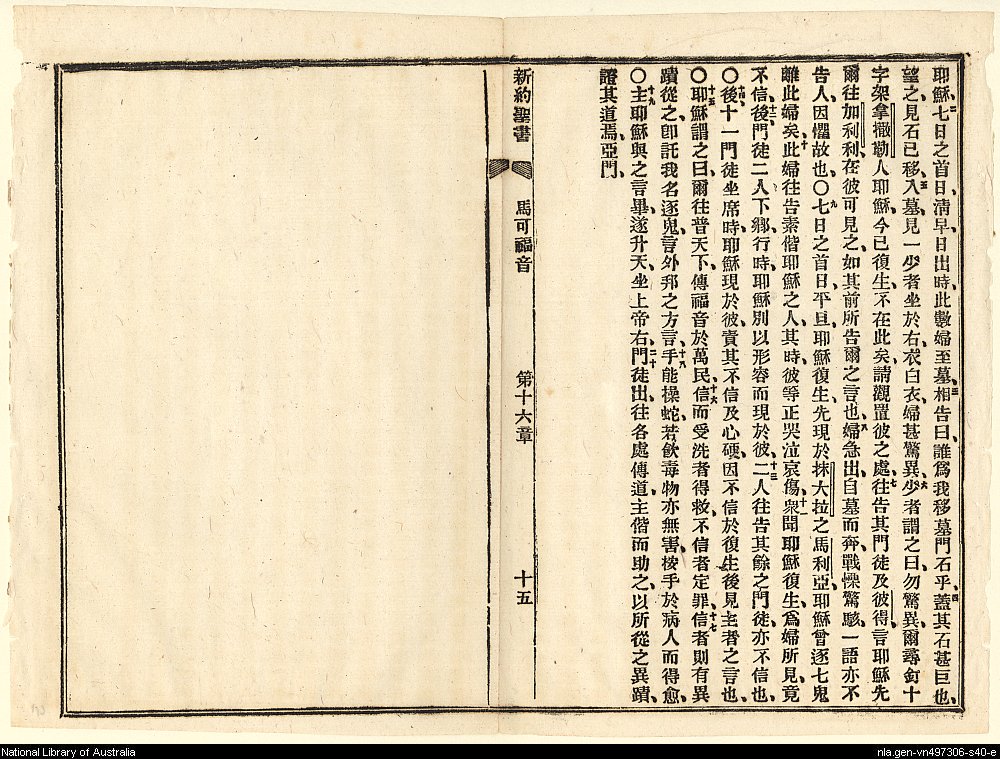 耶穌、二七日之首日、清早日出時、此數婦至墓、三相告曰、誰爲我移墓門石乎、四蓋其石甚巨也、
望之、見石已移、五入墓、見一少者坐於右、衣白衣、婦甚驚異、六少者謂之曰、勿驚異、爾尋釘十
字架拿撒勒人耶穌、今已復生、不在此矣、請觀置彼之處、七往告其門徒及彼得、言耶穌先
爾往加利利、在彼可見之、如其前所告爾之言也、八婦急出自墓而奔、戰慄驚駭、一語亦不
告人、因懼故也、〇九七日之首日、平旦、耶穌復生、先現於抹大拉之馬利亞、耶穌曾逐七鬼
離此婦矣、十此婦往告素偕耶穌之人、其時彼等正哭泣哀傷、十一衆聞耶穌復生、爲婦所見、竟
不信、十二後門徒二人下鄉、行時、耶穌別以形容而現於彼、十三二人往告其餘之門徒、亦不信也、
〇十四後十一門徒坐席時、耶穌現於彼、責其不信及心硬、因不信於復生後見主者之言也、
〇十五耶穌謂之曰、爾往普天下、傳福音於萬民、十六信而受洗者得救、不信者定罪、十七信者則有異
蹟從之、卽託我名逐鬼、言外邦之方言、十八手能操蛇、若飲毒物亦無害、按手於病人而得愈、
〇十九主耶穌與之言畢、遂升天、坐上帝右、二十門徒出往各處傳道、主偕而助之、以所從之異蹟、
證其道焉、亞門、
新約聖書 馬可福音 第十六章 十五
National Library of Australia
nla.gen-vn497306-s40-e